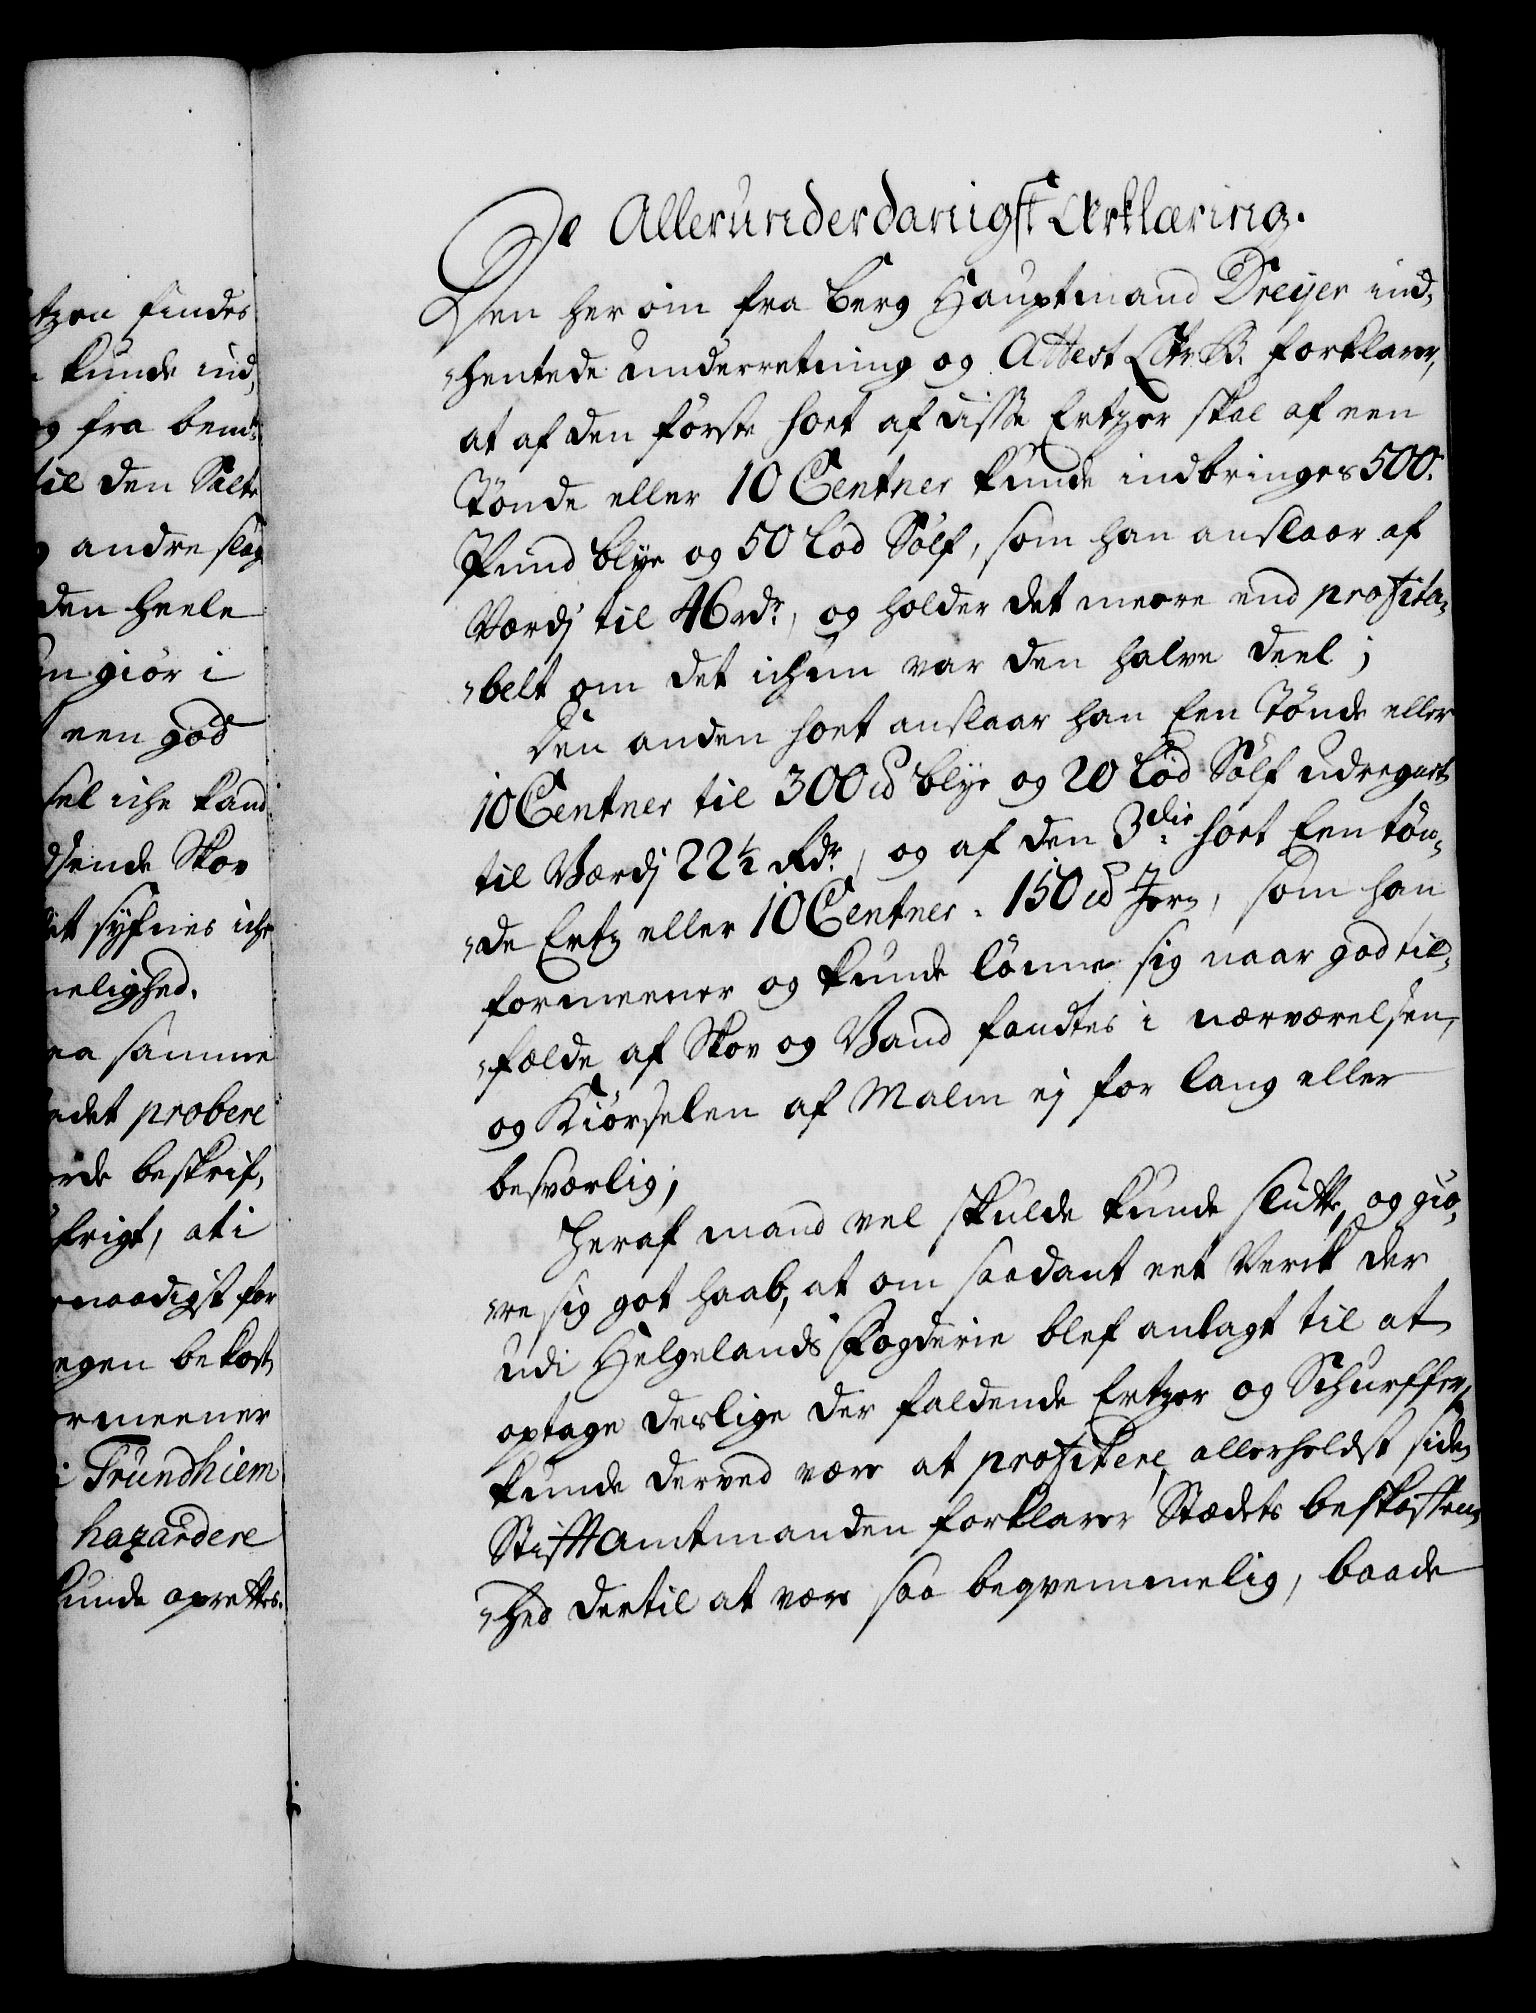 tzen findes
kunde ind,
og fra bemte
til den Salte
andre slag
den heele
un giör i
een god
sel iche kand
sende Skov
syfnes iche
melighed.
samme
edet probere
rde beskrif,
frigt, at i
naadigst for
egen bekost,
rmeener
i Trundhiem
hazardere
kunde oprettes.
De Allerunderdanigst Erklæring.
Den her om fra Berg Hauptmand Dreyer ind,
„hentede underretning og Attest Ltr. B. forklarer,
at af den förste sort af disse Ertzer skal af een
Tönde eller 10 Centner kunde indbringes 500.
Pund blye og 50 Lod Sölf, som han anslaar af
Værdj til 46 rdr, og holder det meere end profita„
„belt om det ichun var den halve deel;
Den anden sort anslaar han Een Tönde eller
10 Centner til 300 ℔ blye og 20 Lod Sölf udregnet
til Værdj 22½ Rdr, og af den 3die sort Een tön„
„de Ertz eller 10 Centner. 150 ℔ Jern, som han
formeener og kunde lönne sig naar god til„
„fælde af Skov og Vand fandtes i nærværelsen,
og Kiörselen af Malm ej for lang eller
besværlig;
Heraf mand vel skulde kunde slutte, og giö„
„re sig got haab, at om saadant eet Verk der
udi Helgelands Fogderie blef anlagt til at
optage deslige der faldende Ertzer og Schurffer,
kunde derved være at profitere, allerheldst siden
Stifftamtmanden forklarer Stædets beskaffen„
„hed dertil at være saa beqvemmelig, baade